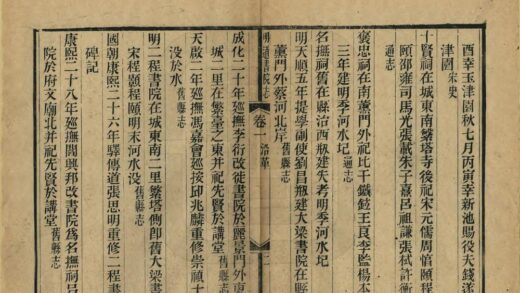 酉幸玉津園秋七月丙寅幸新池賜役夫錢遂
津園 宋史
十賢祠在城東南繁塔寺後祀宋元儒周惇頤程
頤邵雍司馬光張載朱子熹呂祖謙張栻許衡
通志
褒忠祠在南薰門外祀比干鐵鉉王艮李監楊
三年建明季河水圮 通志
名撫祠舊在縣治西剏建失考明季河水圮
明天順五年提學副使劉昌剏建大梁書院在縣
薰門外蔡河北岸 舊縣志
卷一 沿革 二
成化二十年巡撫李衍改徙書院於麗景門外東
城二里在繁臺之東并祀先賢於講堂 舊縣志
天啟二年巡撫馮嘉會巡按邱兆麟重修崇禎十
沒於水 舊縣志
明二程書院在城東南二里繁塔側即舊大梁書
宋程顥程頤明末河水沒 舊縣志
國朝康熙二十六年驛傳道張思明重修二程書
碑記
康熙二十八年巡撫閻興邦改書院為名撫祠呂
院於府文廟北并祀先賢於講堂 舊縣志